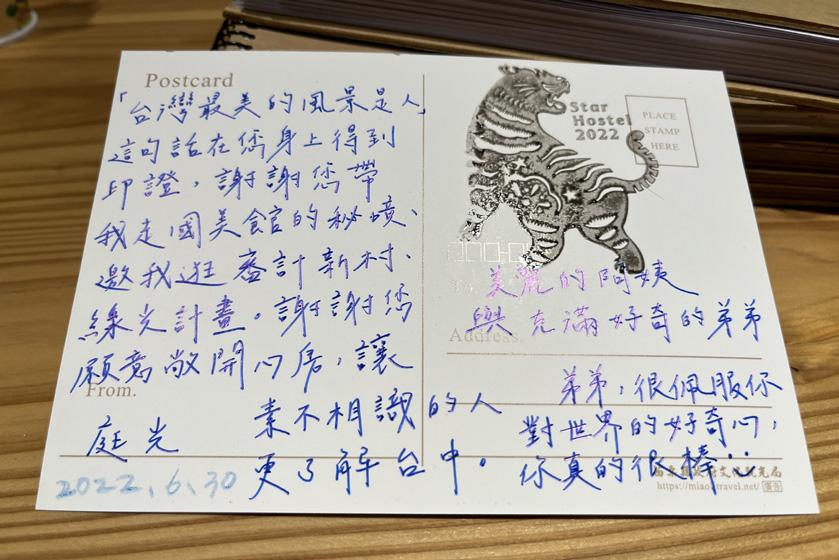 Postcard
「台灣最美的風景是人」
這句話在您身上得到
印證，謝謝您帶
我走國美館的秘境、
邀我逛審計新村、
綠光計畫。謝謝您
願意敞開心房，讓
From.
素不相識的人
庭光
更了解台中。
2022.6.30
Star
Hostel
2022
PLACE
STAMP
HERE
To.
美麗的阿姨
與充滿好奇的弟弟
Address.
弟弟，很佩服你
對世界的好奇心，
你真的很棒
https://miaoltravel.net/ 廣告